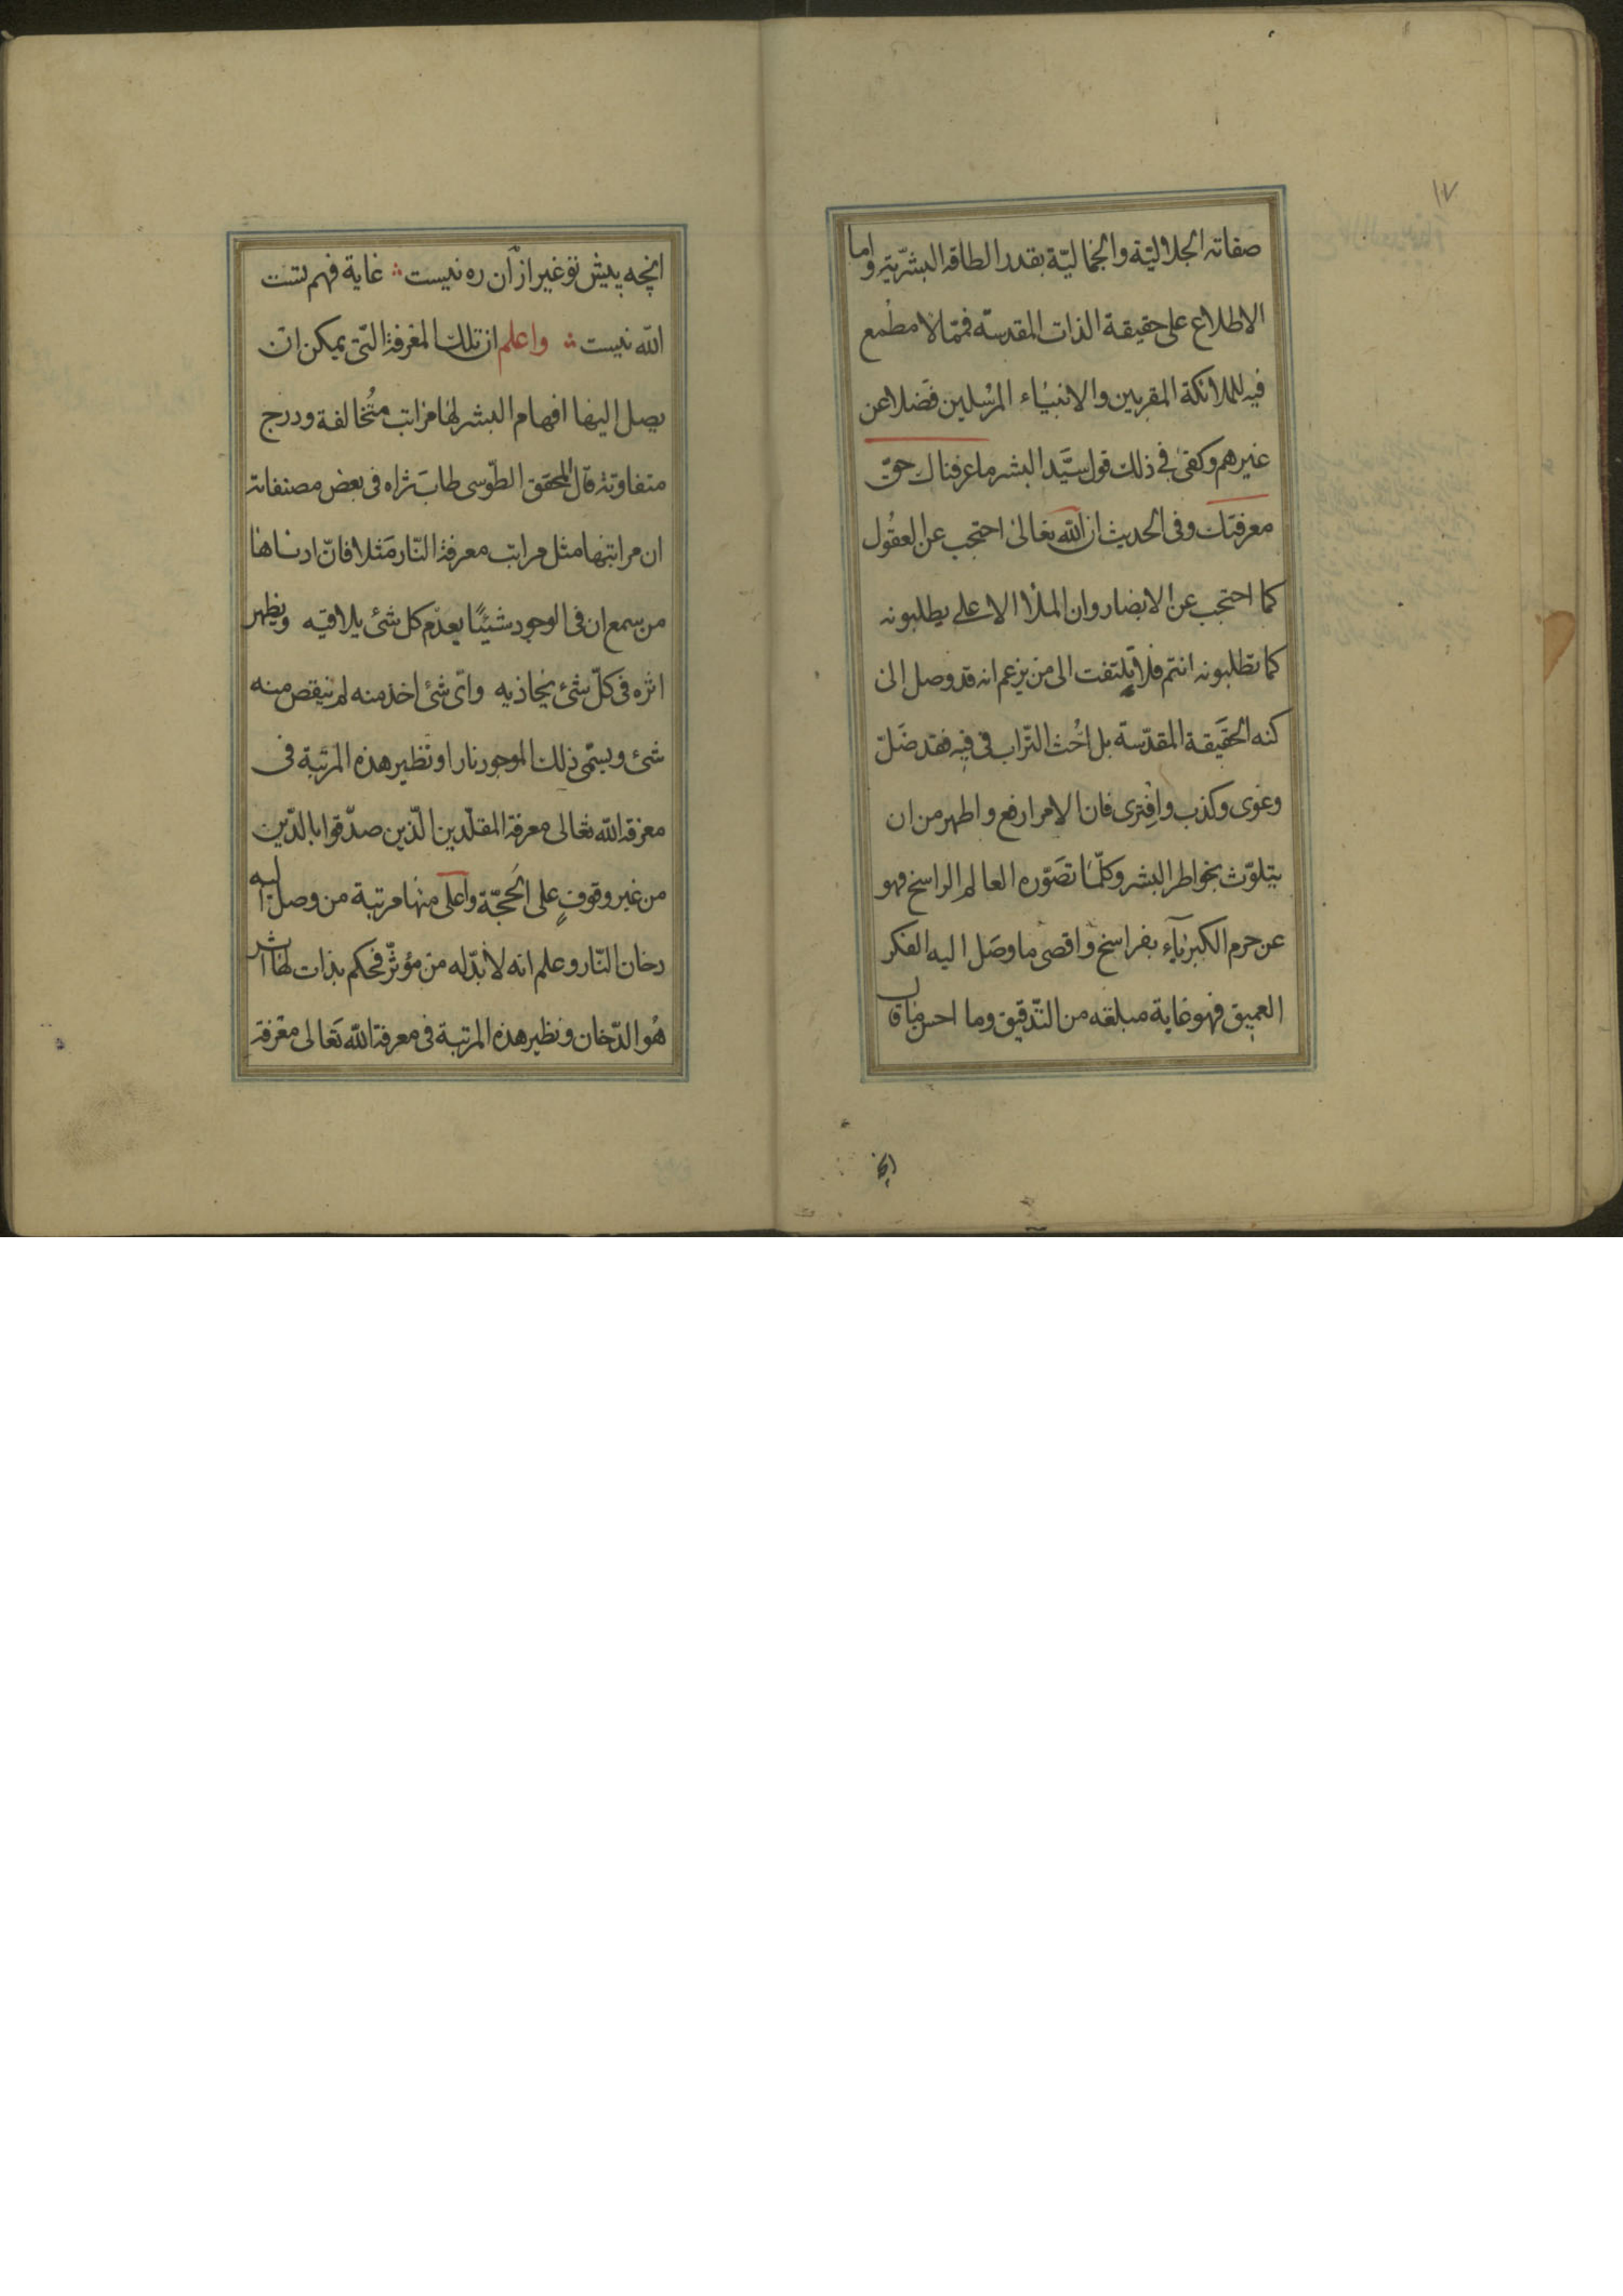 ١٧
صفاته الجلاليّة والجماليّة بقدر الطاقة البشريّة واما
الاطلاع على حقيقة الذات المقدسة فممّا لا مطمع
فيه للملائكة المقربين والانبياء المرسلين فضلا عن
غيرهم وكفى في ذلك قول سيّد البشر ما عرفناك حقّ
معرفتك وفى الحديث ان الله تعالى احتجب عن العقول
كما احتجب عن الابصار وان الملأ الاعلى يطلبونه
كما تطلبونه انتم فلا تلتفت الى من يزعم انه قد وصل الى
كنه الحقيقة المقدّسة بل احث التّراب في فيه فقد ضلّ
وغوى وكذب وافترى فان الامر ارفع واطهر من ان
يتلوّث بخواطر البشر وكلّما تصوّره العالم الراسخ فهو
عن حرم الكبرياء بفراسخ واقصى ما وصل اليه الفكر
العميق فهو غاية مبلغه من التّدقيق وما احسن ما قال
انچه
انچه پیش تو غیر از آن ره نیست ؞ غایة فهم تست
الله نیست ؞ واعلم ان تلك المعرفة الّتى يمكن ان
يصل اليها افهام البشر لها مراتب متخالفة ودرج
متفاوتة قال المحقق الطّوسى طاب ثراه فى بعض مصنفاته
ان مراتبها مثل مراتب معرفة النّار مثلا فانّ ادناها
من سمع ان فى الوجود شيئًا يعدم كل شئ يلاقيه ويظهر
اثره فى كلّ شئ يحاذيه واىّ شئ اخذ منه لم ينقص منه
شئ ويسمّى ذلك الموجود نارا ونظير هذه المرتبة فى
معرفة الله تعالى معرفة المقلّدين الّذين صدّقوا بالدّين
من غير وقوفٍ على الحجّة واعلى منها مرتبة من وصل اليه
دخان النّار وعلم انه لا بدّ له من مؤثّر فحكم بذات لها اثر
هو الدّخان ونظير هذه المرتبة فى معرفة الله تعالى معرفة